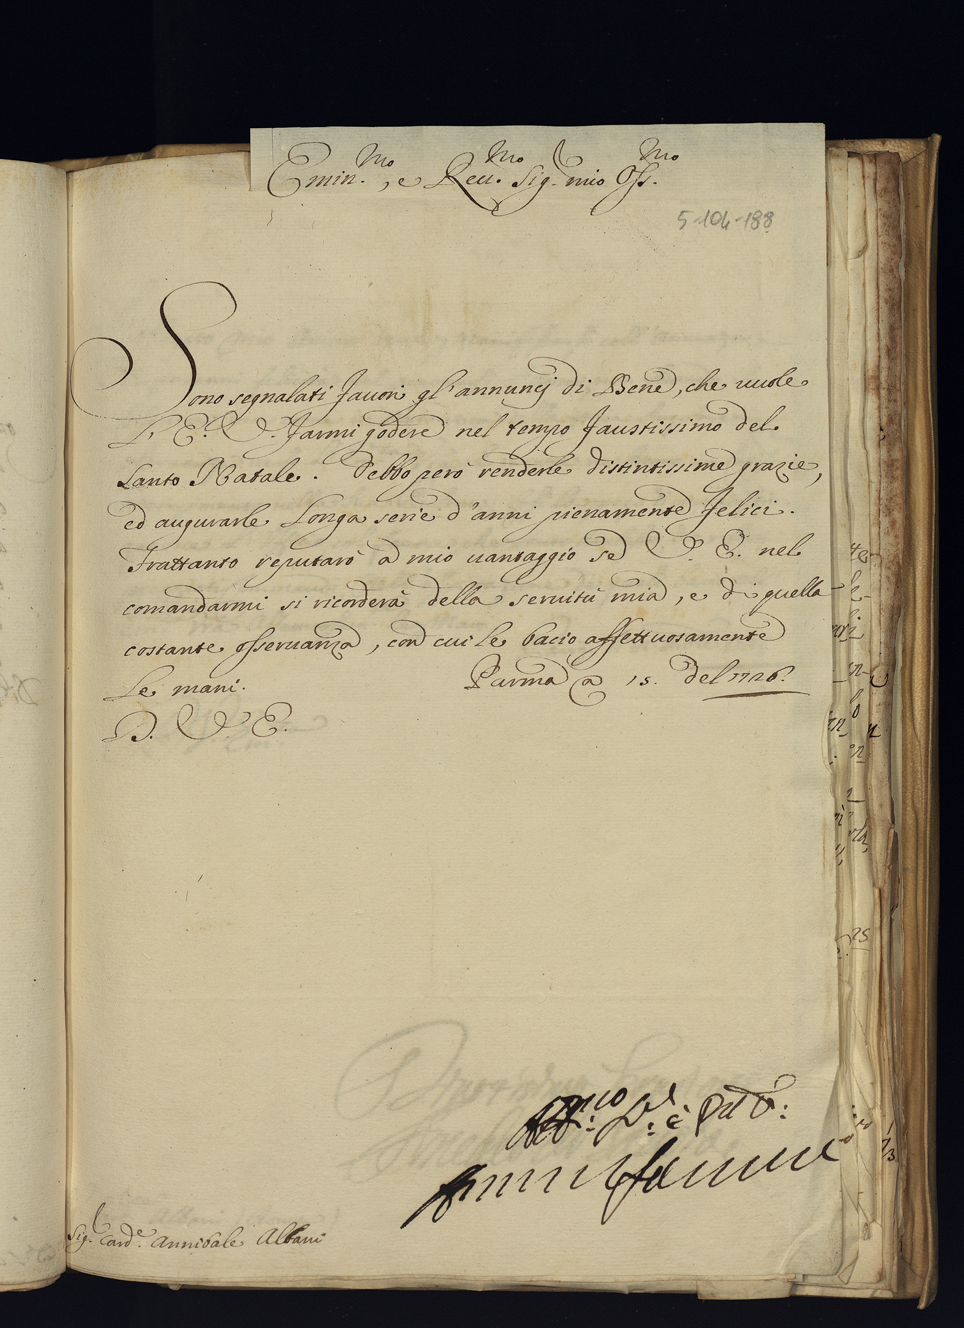 Emin.mo, e Reu.mo Sig.r mio Oss.mo
5-104-188
Sono segnalati fauori gl'annuncj di Bene, che uuole
L'E. V. farmi godere nel tempo faustissimo del
Santo Natale. Debbo però renderle distintissime grazie,
ed augurarle longa serie d'anni pienamente felici.
Frattanto reputarò a mio uantaggio se V. E. nel
comandarmi si ricorderà della seruitù mia, e di quella
costante osseruanza, con cui le bacio affettuosamente
le mani. Parma a 15. del 1726.
D. V. E.
Sig.r Card.e Annibale Albani